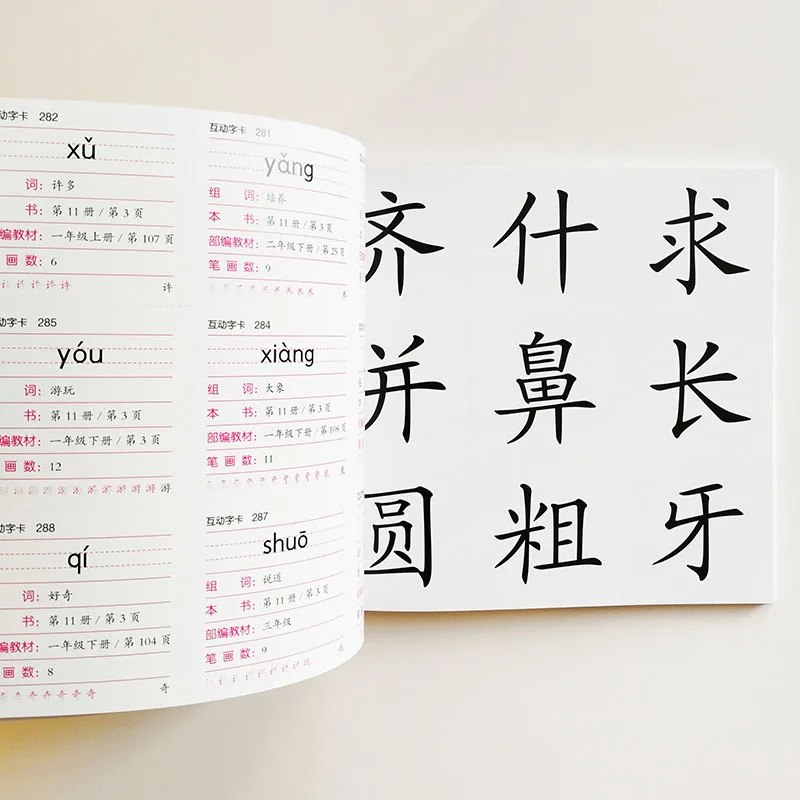 动字卡 282
xǔ
词：许多
书：第11册/第3页
编教材：一年级上册/第107页
画数：6
许
互动字卡 281
yǎng
组 词：培养
本 书：第11册/第3页
部编教材：二年级下册/第25页
笔画数：9
养
动字卡 285
yóu
词：游玩
书：第11册/第3页
编教材：一年级下册/第3页
画数：12
游
互动字卡 284
xiàng
组 词：大象
本 书：第11册/第3页
部编教材：一年级下册/第108页
笔画数：11
动字卡 288
qí
词：好奇
书：第11册/第3页
编教材：一年级下册/第104页
画数：8
奇
互动字卡 287
shuō
组 词：说道
本 书：第11册/第3页
部编教材：三年级
笔画数：9
齐 什 求
并 鼻 长
圆 粗 牙